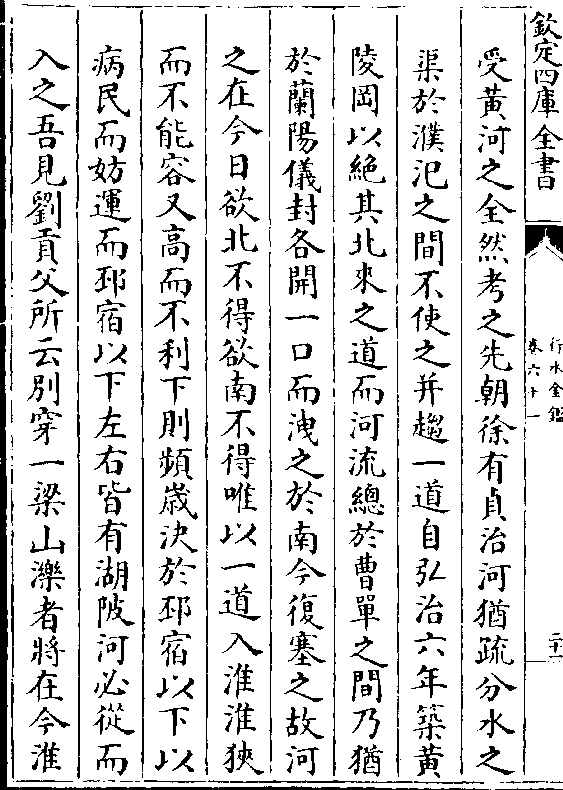 欽定四庫全書
行水金鑑
卷六十一
二十一
受黃河之全然考之先朝徐有貞治河猶疏分水之
渠於濮汜之間不使之并趨一道自弘治六年築黃
陵岡以絕其北來之道而河流總於曹單之間乃猶
於蘭陽儀封各開一口而洩之於南今復塞之故河
之在今日欲北不得欲南不得唯以一道入淮淮狹
而不能容又高而不利下則頻歲決於邳宿以下以
病民而妨運而邳宿以下左右皆有湖陂河必從而
入之吾見劉貢父所云別穿一梁山濼者將在今淮